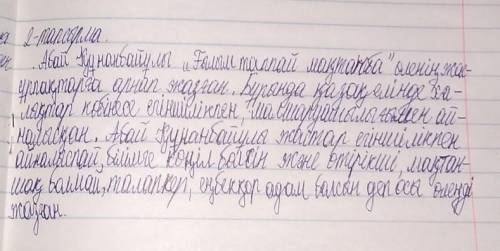 2-тапсырма.
Абай Құнанбайұлы „Ғылым таппай мақтанба" өлеңін жас-
ұрпақтарға арнап жазған. Бұрында қазақ елінде ба-
лақтар көбінесе егіншілікпен, мал шаруашылығымен ай-
налысқан. Абай Құнанбайұлы жастар егіншілікпен
айналыспай, білімге көңіл бөлсін және өтірікші, мақтан-
шақ болмай, талапкер, еңбекқор адам болсын деп осы өлеңді
жазған.